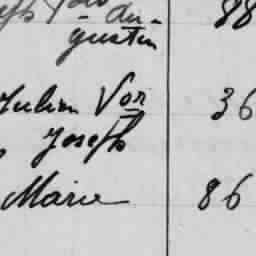 - Au-
gustin 88
Julien Von 36
Joseph
Marie 86